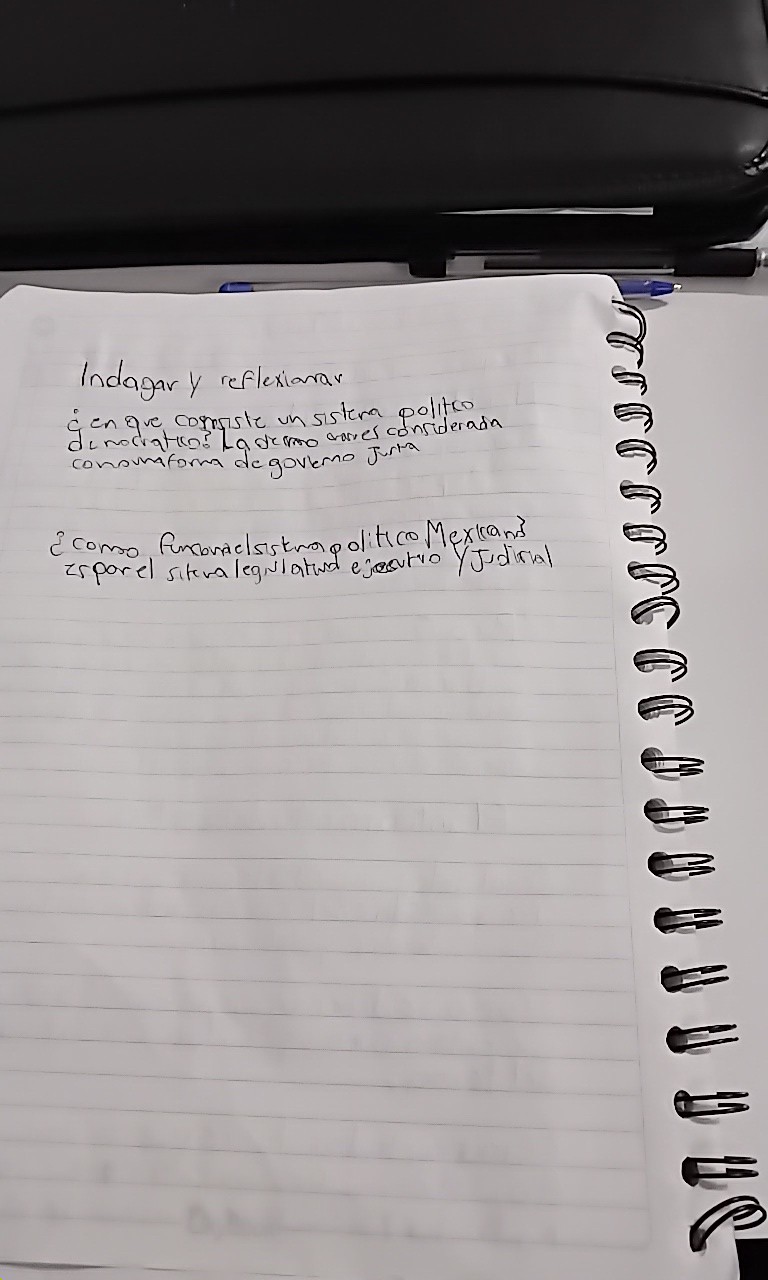 Indagar y reflexionar
¿en que consiste un sistema politco
democratico? La democrares considerada
como una forma de governo Justa
¿como funcona el sistema politico Mexican?
es por el sitema legislatud ejecutvo Y Judicial